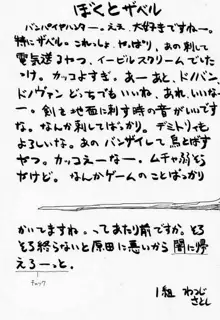 ぼくとザベル
バンパイヤハンター。ええ、大好きですねー。
特にザベル。これっしょ、やっぱり。あの刺して
電気送るやつ、イービルスクリームでした
っけ。カッコよすぎ。あーあと、ドノバン、
ドノヴァン どっちでもいいね、あれ、いいな
ー。剣を地面に刺す時の音がいいです
な。なんか刺してばっかり。デミトリも
よろしいな。あのバンザイして鳥とばす
やつ。カッコえーなー。ムチャ弱そう
やけど。なんかゲームのことばっかり
かいてますね。ってあたり前ですか。そろ
そろ終らないと原田に悪いから 闇に帰
えろーっと。
チェック
1組 わっじ
さとし